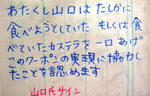 あたくし山口は たしかに
食べようとしていた もしくは食
べていたカステラを一口 あげ
このクーポンの実現に協力し
たことを認めます
山口氏サイン